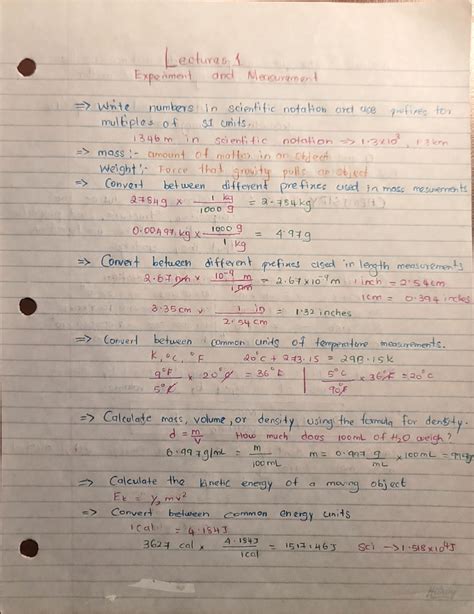 Lectures 1
Experiment and Measurement
=> Write numbers in scientific notation and use prefixes for
multiples of SI units.
1346m in scientific notation => 1.3x10³, 1.3km
=> mass:- amount of matter in an object
Weight:- Force that gravity pulls an object
=> Convert between different prefixes used in mass mesurements
2754g x 1 kg / 1000 g = 2.754kg
0.00497kg x 1000 g / 1 kg = 4.97g
=> Convert between different prefixes used in length measurements
2.67 nm x 10⁻⁹ m / 1 nm = 2.67x10⁻⁹m 1 inch = 2.54cm
1cm = 0.394 inches
3.35cm x 1 in / 2.54cm = 1.32 inches
=> Convert between common units of temperature measurements.
K, °C, °F 20°C + 273.15 = 293.15k
9°F / 5°C x 20°C = 36°F | 5°C / 9°F x 36°F = 20°C
=> Calculate mass, volume, or density using the formula for density.
d = m/v How much does 100mL of H₂O weigh?
0.997g/mL = m / 100mL m = 0.997 g/mL x 100mL =
=> Calculate the kinetic energy of a moving object
Ek = ½mv²
=> Convert between common energy units
1Cal = 4.184J
3627 cal x 4.184J / 1cal = Sci -> 1.518x10⁴J